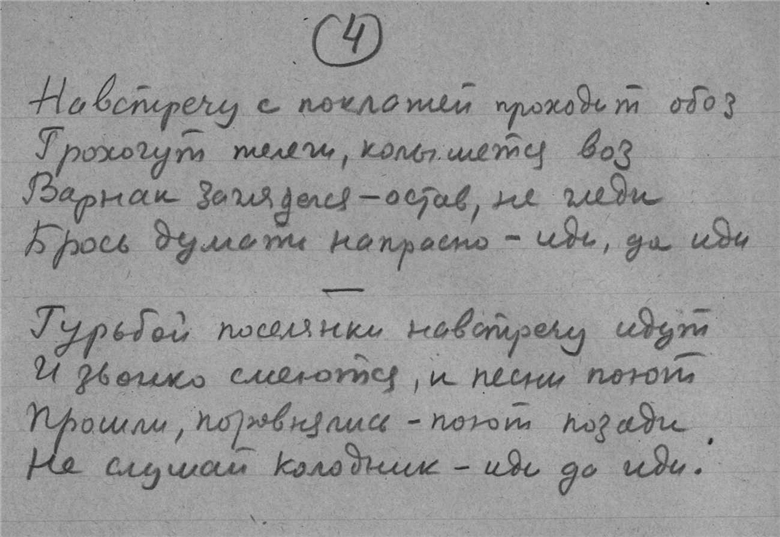 4
Навстречу с поклажей проходит обоз
Грохочут телеги, колышется воз
Варнак загляделся – остав, не гляди
Брось думать напрасно – иди, да иди
—
Гурьбой поселянки навстречу идут
И звонко смеются, и песни поют
Прошли, поровнялись – поют позади
Не слушай колодник – иди да иди.